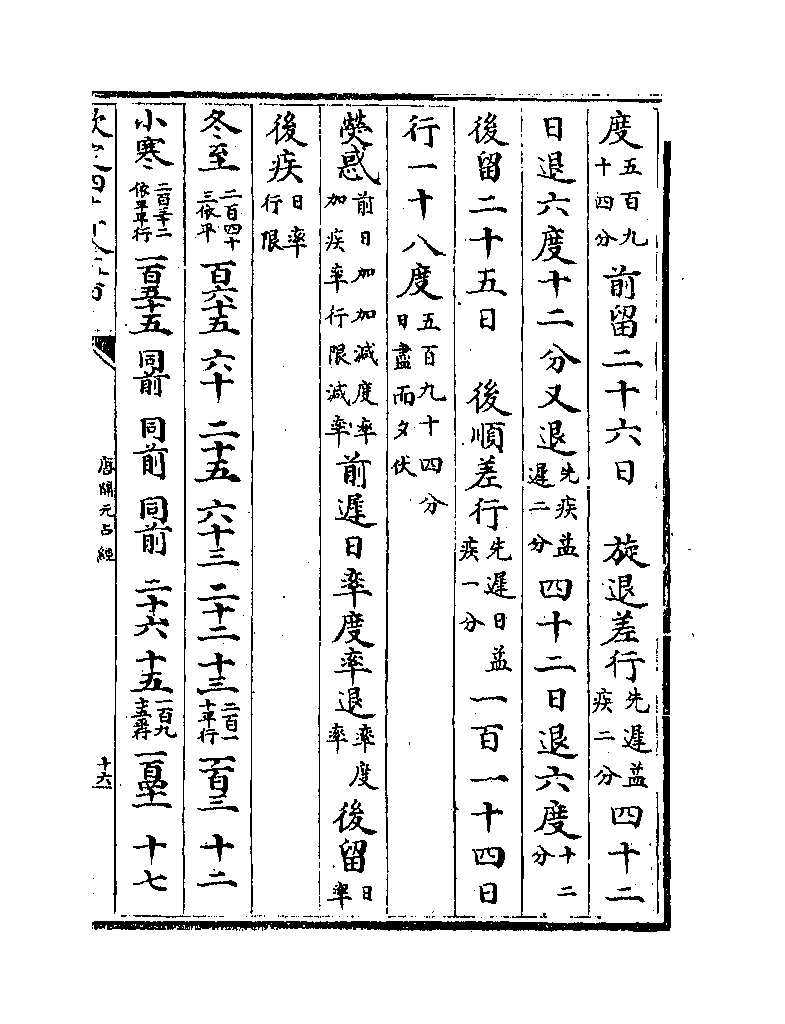 度五百九十四分前留二十六日 旋退差行先遲益疾二分四十二
日退六度十二分又退先疾益遲二分四十二日退六度十二分
後留二十五日 後順差行先遲日益疾一分一百一十四日
行一十八度五百九十四分日盡而夕伏
熒惑前日加加減度率加疾率行限減率前遲日率度率退率度率後留日率
後疾日率行限
冬至二百四十三依平 百六十五 六十 二十五 六十三 二十二 十三二百一十平行 一百三 十二
小寒 一百五十五 同前 同前 同前 二十六 十五 十七
唐開元占經
十六